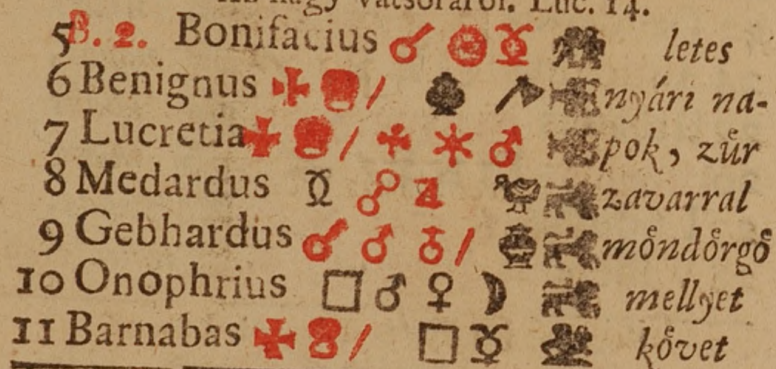 nagy vatsoraról. Luc. 14.
5 B. 2. Bonifacius ☌ ☿ letes
6 Benignus nyári na-
7 Lucretia ✶ ♂ pok, zűr
8 Medardus ☿ ☍ ♃ zavarral
9 Gebhardus ☌ ♂ ♁ möndörgö
10 Onophrius □ ♂ ♀ ☽ mellyet
11 Barnabas □ ☿ követ